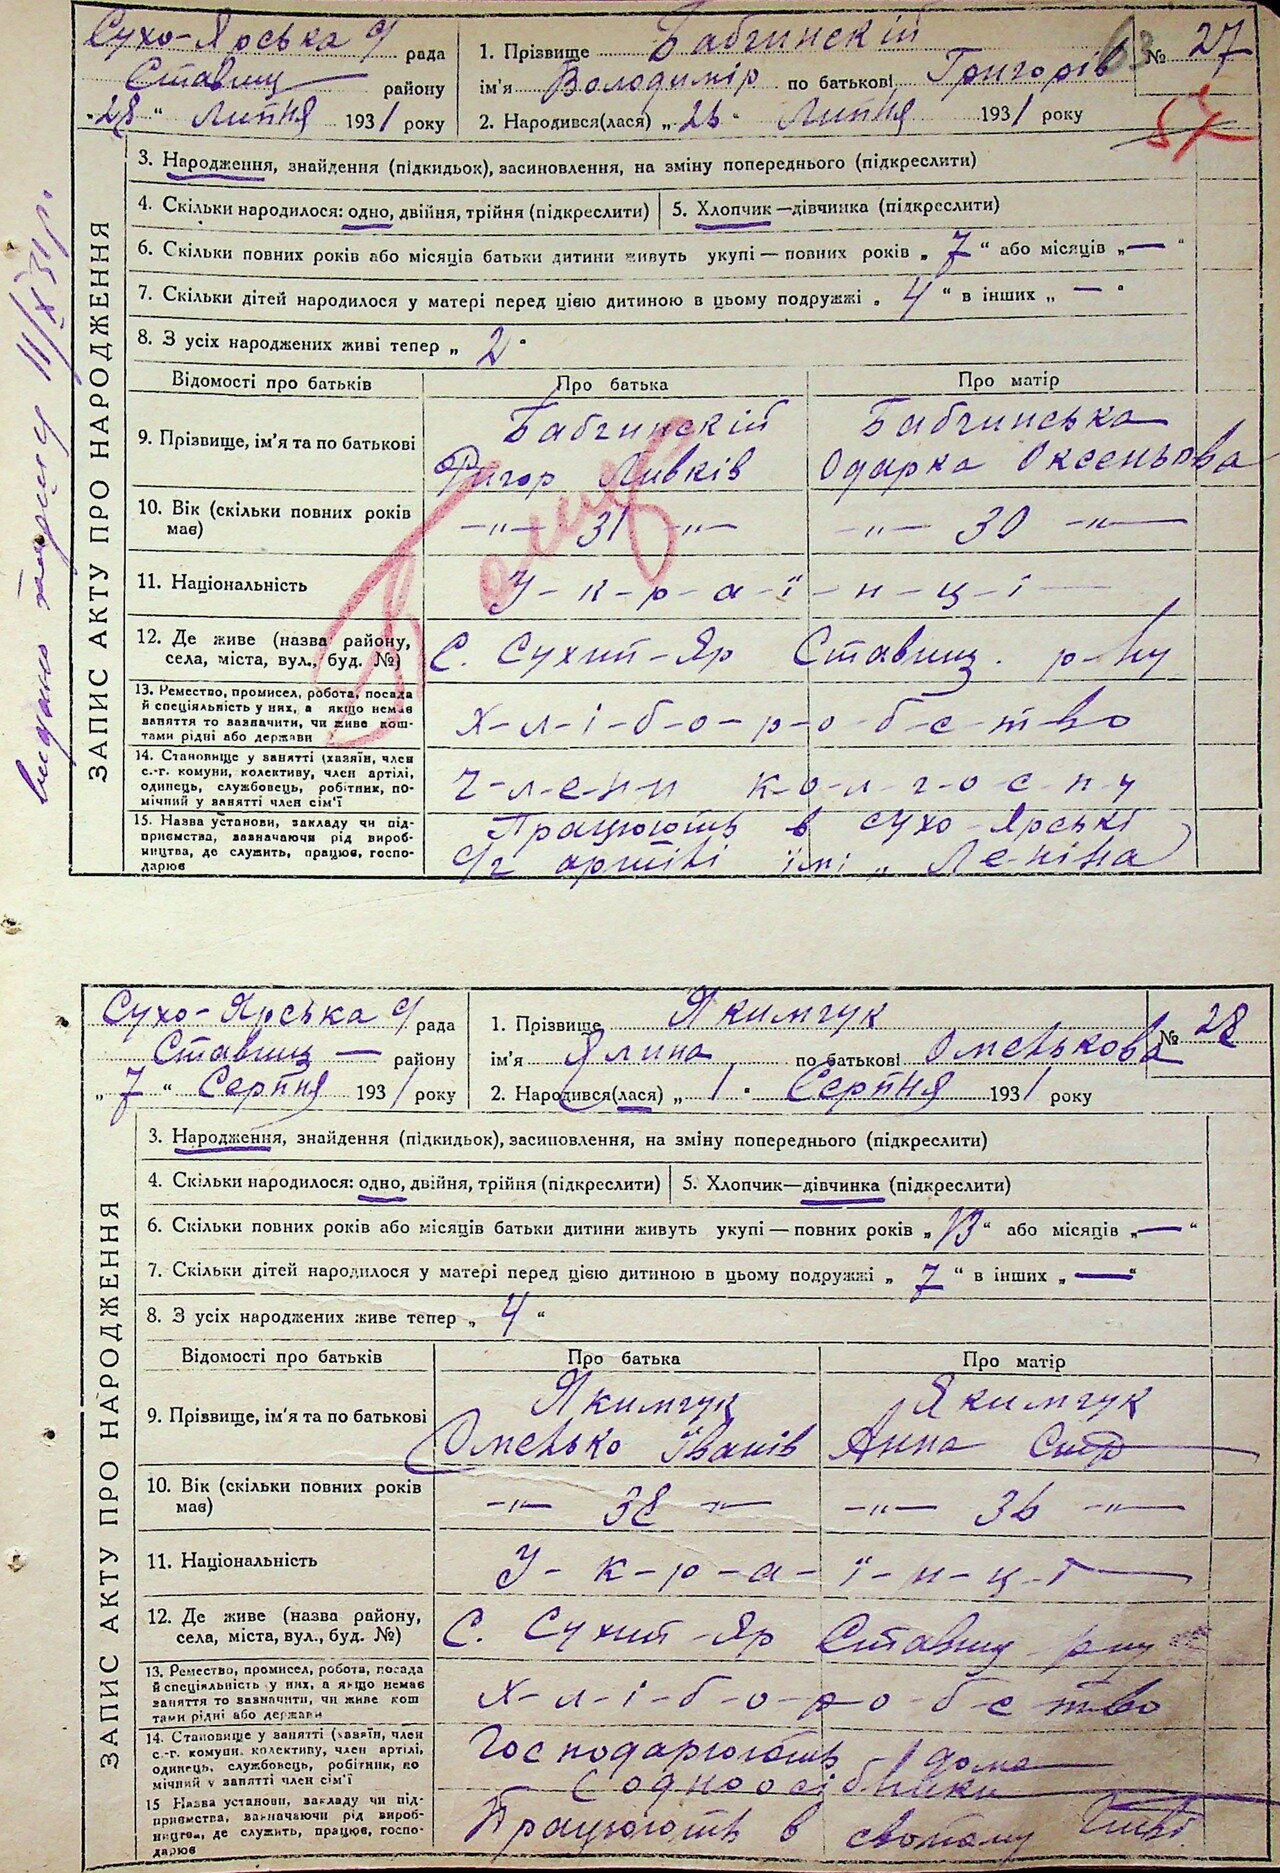 Сухо-Ярська с/ рада
Ставищ району
"28" Липня 1931 року
1. Прізвище Бабчинскій
ім'я Володимір по батькові Григорів
2. Народився(лася) „26" Липня 1931 року
63
№ 27
57
ЗАПИС АКТУ ПРО НАРОДЖЕННЯ
3. Народження, знайдення (підкидьок), засиновлення, на зміну попереднього (підкреслити)
4. Скільки народилося: одно, двійня, трійня (підкреслити)
5. Хлопчик—дівчинка (підкреслити)
6. Скільки повних років або місяців батьки дитини живуть укупі — повних років „7" або місяців „—"
7. Скільки дітей народилося у матері перед цією дитиною в цьому подружжі „4" в інших „—"
8. З усіх народжених живі тепер „2"
Відомості про батьків Про батька Про матір
9. Прізвище, ім'я та по батькові
Бабчинскій Бабчинська
Григор Ливків Одарка Оксеньтова
10. Вік (скільки повних років має) —"— 31 —"— —"— 30 —"—
11. Національність У-к-р-а-ї-н-ц-і
12. Де живе (назва району, села, міста, вул., буд. №) С. Сухий-Яр Ставищ. р-ну
13. Ремество, промисел, робота, посада
й спеціяльність у них, а якщо немає
заняття то зазначити, чи живе кош
тами рідні або держави
х-л-і-б-о-р-о-б-с-тво
14. Становище у занятті (хазяїн, член
с.-г. комуни, колективу, член артілі,
одинець, службовець, робітник, по-
мічний у занятті член сім'ї
ч-л-е-н-и к-о-л-г-о-с-п-у
15. Назва установи, закладу чи під-
приємства, зазначаючи рід вироб-
ництва, де служить, працює, госпо-
дарює
Працюють в Сухо-Ярські
с/г артілі імі „Леніна
видано 11/XI 31 р.
Сухо-Ярська с/ рада
Ставищ — району
„7" Серпня 1931 року
1. Прізвище Якимчук
ім'я Ялина по батькові Оменькова
2. Народився(лася) „1" Серпня 1931 року
№ 28
ЗАПИС АКТУ ПРО НАРОДЖЕННЯ
3. Народження, знайдення (підкидьок), засиновлення, на зміну попереднього (підкреслити)
4. Скільки народилося: одно, двійня, трійня (підкреслити)
5. Хлопчик—дівчинка (підкреслити)
6. Скільки повних років або місяців батьки дитини живуть укупі — повних років „13" або місяців „—"
7. Скільки дітей народилося у матері перед цією дитиною в цьому подружжі „7" в інших „—"
8. З усіх народжених живе тепер „4"
Відомості про батьків Про батька Про матір
9. Прізвище, ім'я та по батькові
Якимчук Якимчук
Оменько Іванів Анна
10. Вік (скільки повних років має) —"— 38 —"— —"— 36 —"—
11. Національність У-к-р-а-ї-н-ц-і
12. Де живе (назва району, села, міста, вул., буд. №) С. Сухий-Яр Ставищ р-ну
13. Ремество, промисел, робота, посада
й спеціяльність у них, а якщо немає
заняття то зазначити, чи живе кош
тами рідні або держави
х-л-і-б-о-р-о-б-с-тво
14. Становище у занятті (хазяїн, член
с.-г. комуни, колективу, член артілі,
одинець, службовець, робітник, по
мічний у занятті член сім'ї
Господарюють дома
(одноосібники
15 Назва установи, закладу чи під-
приємства, зазначаючи рід вироб-
ництва, де служить, працює, госпо-
дарює
Працюють в свойому